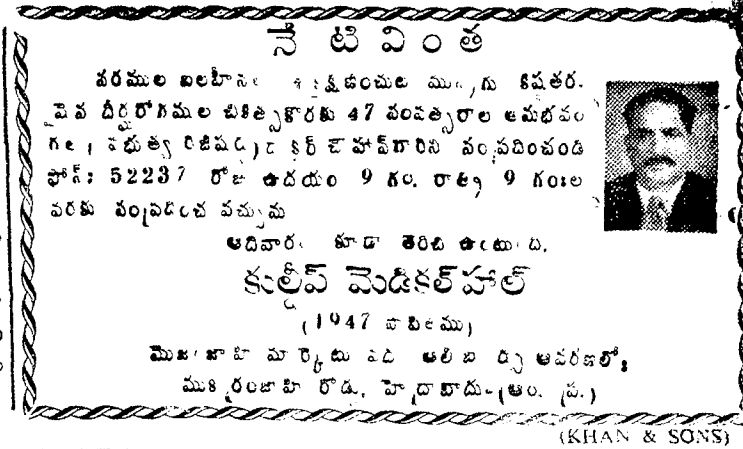 నే టి వింత
నరముల బలహీనత
మైన దీర్ఘరోగముల చికిత్సకొరకు 47 సంవత్సరాల అనుభవం
గల ప్రభుత్వ రిజిష్టర్డు డాక్టర్ చౌహాన్‌గారిని సంప్రదించండి
ఫోన్: 52237 రోజు ఉదయం 9 గం. రాత్రి 9 గంటల
వరకు సంప్రదించ వచ్చును
ఆదివారం కూడా తెరిచి ఉంటుంది.
కుల్దీప్ మెడికల్‌హాల్
(1947 స్థాపితము)
మొజంజాహి మార్కెటు వద్ద ఆవరణలో:
ముకరంజాహి రోడు, హైద్రాబాదు-(ఆం. ప్ర.)
(KHAN & SONS)